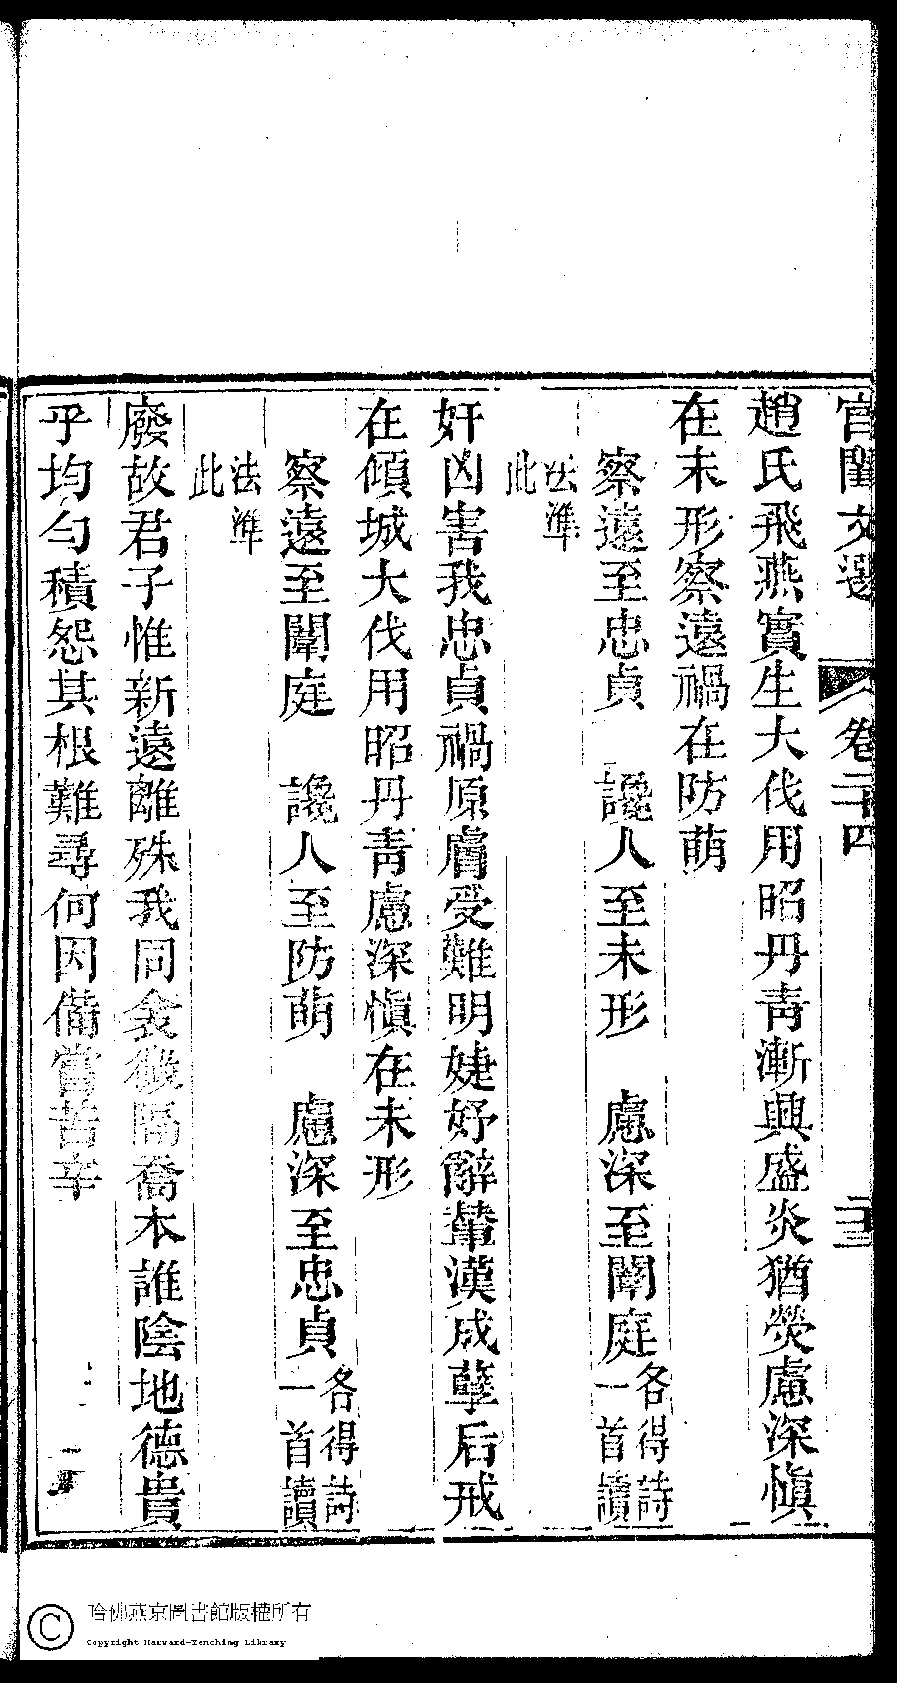 宮閨文選 卷二十四 二三
趙氏飛燕實生大伐用昭丹青漸興盛炎猶熒慮深慎
在未形察遠禍在防萌
察遠至忠貞 讒人至未形 慮深至闈庭各得詩一首讀
法準此
奸凶害我忠貞禍原膚受難明婕妤辭輦漢成孽后戒
在傾城大伐用昭丹青慮深慎在未形
察遠至闈庭 讒人至防萌 慮深至忠貞各得詩一首讀
法準此
廢故君子惟新遠離殊我同衾微隔喬木誰陰地德貴
乎均勻積怨其根難尋何因備嘗苦辛
哈佛燕京圖書館版權所有
Copyright Harvard-Yenching Library